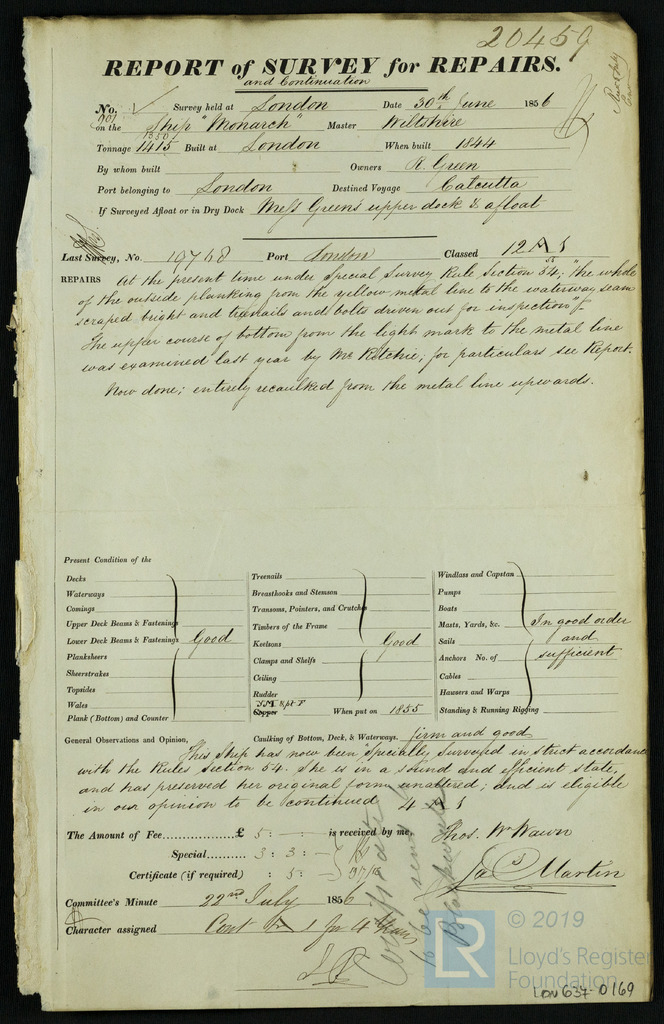 20459
REPORT of SURVEY for REPAIRS.
and Continuation
No. Survey held at London Date 30th June 1856
on the Ship "Monarch" Master Wiltshire
Tonnage 1415 Built at London When built 1844
By whom built Owners R. Green
Port belonging to London Destined Voyage Calcutta
If Surveyed Afloat or in Dry Dock Mess Green's upper dock & afloat
Last Survey, No. 19768 Port London Classed 12 A 1
REPAIRS At the present time under Special Survey Rule Section 54; "the whole
of the outside planking from the yellow metal line to the waterway seam
scraped bright and treenails and bolts driven out for inspection"
The upper course of bottom from the light mark to the metal line
was examined last year by Mr Ritchie; for particulars see Report.
Now done; entirely recaulked from the metal line upwards.
Present Condition of the
Decks
Waterways
Comings
Upper Deck Beams & Fastenings
Lower Deck Beams & Fastenings Good
Planksheers
Sheerstrakes
Topsides
Wales
Plank (Bottom) and Counter
Treenails
Breasthooks and Stemson
Transoms, Pointers, and Crutches
Timbers of the Frame
Keelsons Good
Clamps and Shelfs
Ceiling
Rudder
Copper When put on 1855
Windlass and Capstan
Pumps
Boats
Masts, Yards, &c. In good order
Sails and
Anchors No. of sufficient
Cables
Hausers and Warps
Standing & Running Rigging
General Observations and Opinion, Caulking of Bottom, Deck, & Waterways, firm and good
This Ship has now been specially Surveyed in strict accordance
with the Rules Section 54. She is in a sound and efficient state,
and has preserved her original form unaltered; and is eligible
in our opinion to be continued 4 A 1
The Amount of Fee £ 5 : - : - is received by me, Thos. W Wawn
Special 3 : 3 : -
Certificate (if required) : 5 : - Jas Martin
Committee's Minute 22nd July 1856
Character assigned Cont A 1 for 4 Years
Certificate
to be sent
LR
© 2019
Lloyd's Register
Foundation
LON 637-0169